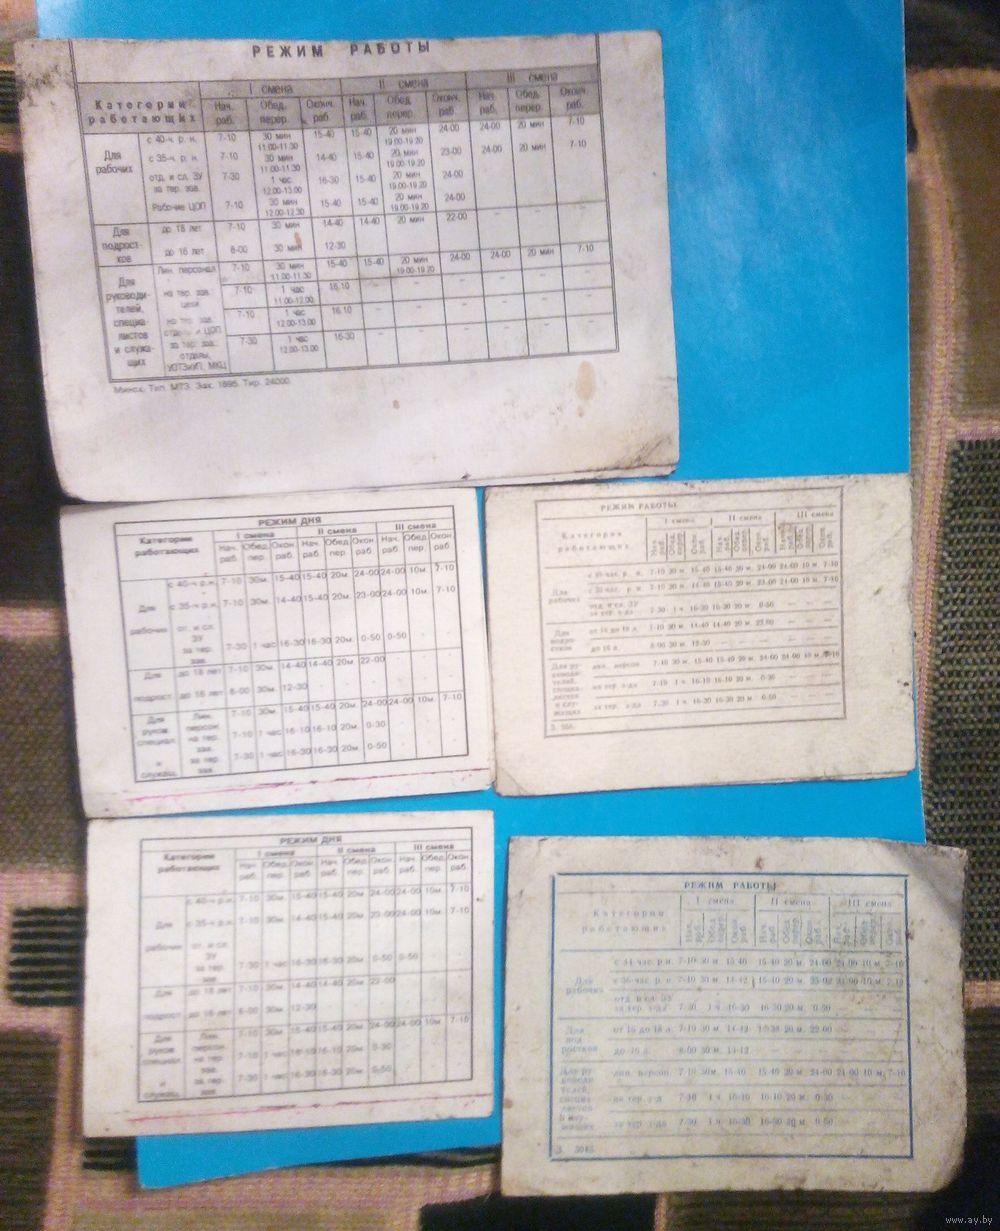 РЕЖИМ РАБОТЫ
Категории работающих I смена II смена III смена
Нач. раб. Обед. перер. Оконч. раб. Нач. раб. Обед. перер. Оконч. раб. Нач. раб. Обед. перер. Оконч. раб.
Для рабочих
с 40-ч. р. н. 7-10 30 мин 11.00-11.30 15-40 15-40 20 мин 19.00-19.20 24-00 24-00 20 мин 7-10
с 35-ч. р. н. 7-10 30 мин 11.00-11.30 14-40 15-40 20 мин 19.00-19.20 23-00 24-00 20 мин 7-10
отд. и сл. ЗУ за тер. зав. 7-30 1 час 12.00-13.00 16-30 15-40 20 мин 19.00-19.20 24-00
Рабочие ЦОП 7-10 30 мин 12.00-12.30 15-40 15-40 20 мин 19.00-19.20 24-00
Для подрост-ков
до 18 лет 7-10 30 мин 14-40 14-40 20 мин 22-00 – – –
до 16 лет 8-00 30 мин 12-30
Для руководи-телей, специа-листов и служа-щих
Лин. персонал 7-10 30 мин 11.00-11.30 15-40 15-40 20 мин 19.00-19.20 24-00 24-00 20 мин 7-10
на тер. зав. цехи 7-10 1 час 11.00-12.00 16.10 – – – – – –
на тер. зав. отделы и ЦОП 7-10 1 час 12.00-13.00 16.10 – – – – – –
за тер. зав. отделы, УОТЗиУП, МКЦ 7-30 1 час 12.00-13.00 16-30 – – – – – –
Минск. Тип. МТЗ. Зак. 1895. Тир. 24000.
РЕЖИМ ДНЯ
Категории работающих I смена II смена III смена
Нач. раб. Обед. пер. Окон. раб. Нач. раб. Обед. пер. Окон. раб. Нач. раб. Обед. пер. Окон. раб.
Для рабочих
с 40-ч р.н. 7-10 30м. 15-40 15-40 20м. 24-00 24-00 10м. 7-10
с 35-ч р.н. 7-10 30м. 14-40 15-40 20м. 23-00 24-00 10м. 7-10
от. и сл. ЗУ за тер. зав. 7-30 1 час 16-30 16-30 20м. 0-50 0-50 - -
Для подрост.
до 18 лет 7-10 30м. 14-40 14-40 20м. 22-00 - - -
до 16 лет 8-00 30м. 12-30 - - - - - -
Для руков. специал. и служащ.
Лин. персон. 7-10 30м. 15-40 15-40 20м. 24-00 24-00 10м. 7-10
на тер. зав. 7-10 1 час 16-10 16-10 20м. 0-30 - - -
за тер. зав. 7-30 1 час 16-30 16-30 20м. 0-50 - - -
РЕЖИМ РАБОТЫ
Категории работающих I смена II смена III смена
Для рабочих
7-10 30 м. 15-40 15-40 20 м. 24-00 24-00 10 м. 7-10
7-10 30 м. 14-40 15-40 20 м. 23-00 24-00 10 м. 7-10
отд. и сл. ЗУ за тер. з-да 7-30 1 ч. 16-30 16-30 20 м. 0-50 — — —
Для подро-стков
от 16 до 18 л. 7-10 30 м. 14-40 14-40 20 м. 22-00 — — —
до 16 л. 8-00 30 м. 12-30 — — — — — —
Для ру-ководи-телей, специа-листов и слу-жащих
лин. персон. 7-10 30 м. 15-40 15-40 20 м. 24-00 24-00 10 м. 7-10
на тер. з-да 7-10 1 ч. 16-10 16-10 20 м. 0-30 — — —
за тер. з-да 7-30 1 ч. 16-30 16-30 20 м. 0-50 — — —
РЕЖИМ ДНЯ
Категории работающих I смена II смена III смена
Нач. раб. Обед. пер. Окон. раб. Нач. раб. Обед. пер. Окон. раб. Нач. раб. Обед. пер. Окон. раб.
Для рабочих
с 40-ч р.н. 7-10 30м. 15-40 15-40 20м. 24-00 24-00 10м. 7-10
с 35-ч р.н. 7-10 30м. 14-40 15-40 20м. 23-00 24-00 10м. 7-10
от. и сл. ЗУ за тер. зав. 7-30 1 час 16-30 16-30 20м. 0-50 0-50 - -
Для подрост.
до 18 лет 7-10 30м. 14-40 14-40 20м. 22-00 - - -
до 16 лет 8-00 30м. 12-30 - - - - - -
Для руков. специал. и служащ.
Лин. персон. 7-10 30м. 15-40 15-40 20м. 24-00 24-00 10м. 7-10
на тер. зав. 7-10 1 час 16-10 16-10 20м. 0-30 - - -
за тер. зав. 7-30 1 час 16-30 16-30 20м. 0-50 - - -
РЕЖИМ РАБОТЫ
Категории работающих I смена II смена III смена
Для рабочих
7-10 30 м. 15-40 15-40 20 м. 24-00 24-00 10 м. 7-10
с 36-час. р.н. 7-10 30 м. 14-12 15-40 20 м. 24-00 10 м. 7-10
отд. и сл. ЗУ за тер. з-да 7-30 1 ч. 16-30 16-30 20 м. 0-50 — — —
Для под ростков
от 16 до 18 л. 7-10 30 м. 14-12 20 м. 22-00 — — —
до 16 л. 8-00 30 м. — — — — — —
Для ру ководи телей, специа листов и слу жащих
лин. персон. 7-10 30 м. 15-40 15-40 20 м. 24-00 24-00 10 м. 7-10
на тер. з-да 1 ч. 16-10 16-10 20 м. 0-30 — — —
за тер. з-да 7-30 1 ч. 16-30 16-30 20 м. 0-50 — — —
www.ay.by